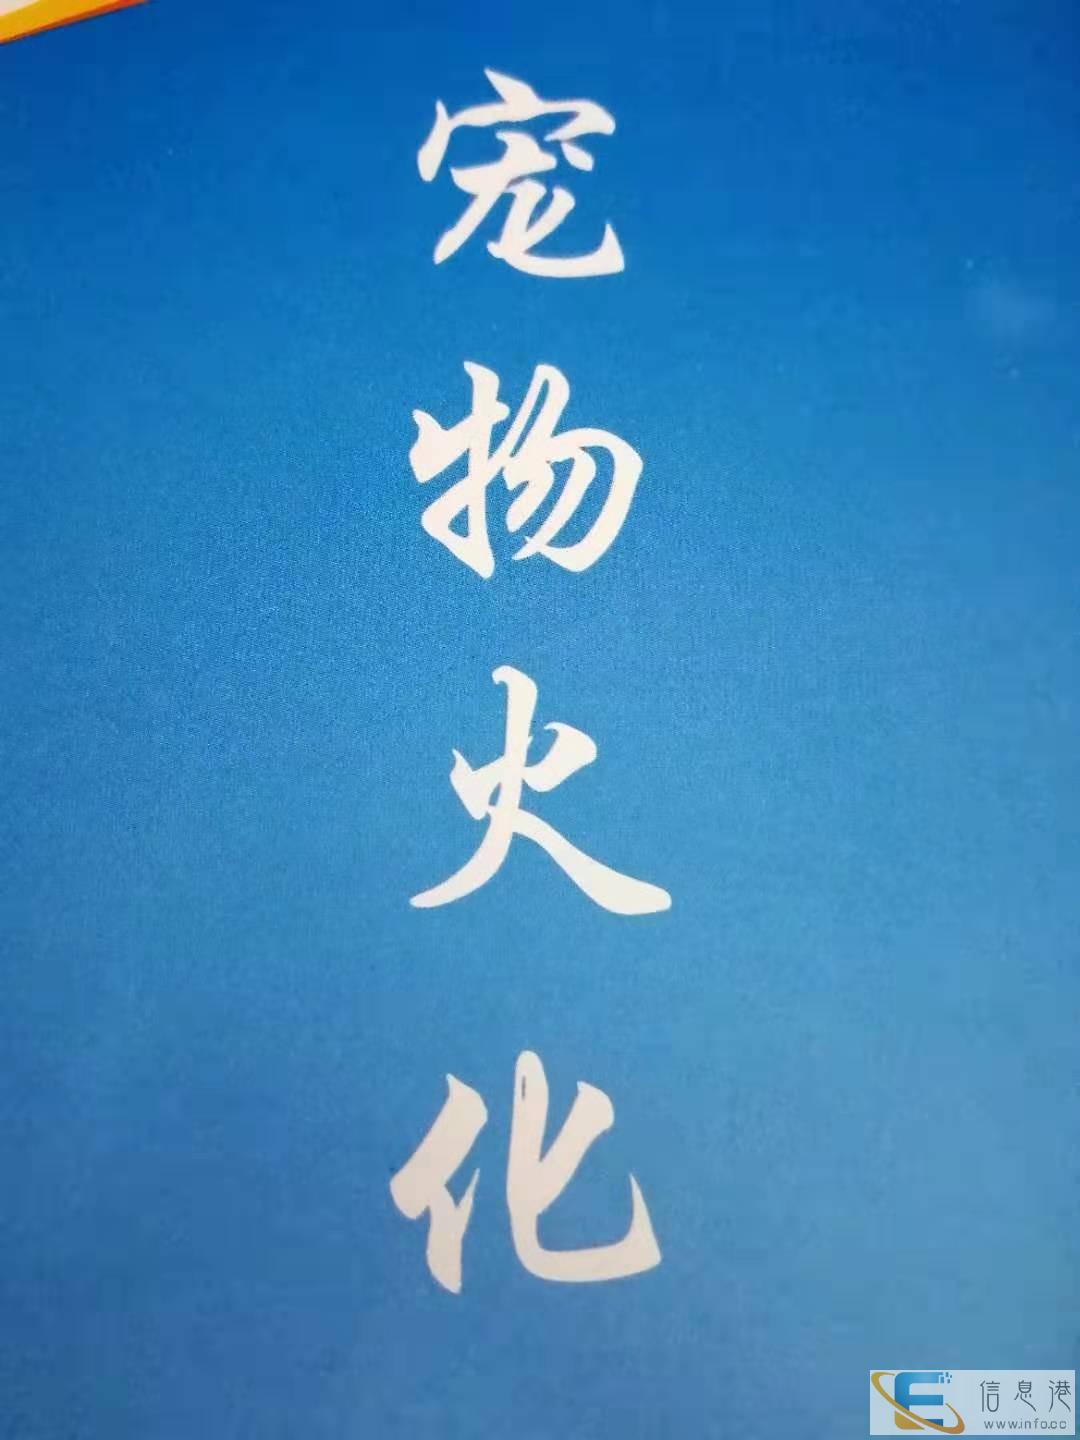 宠物火化
信息港
www.info.cc